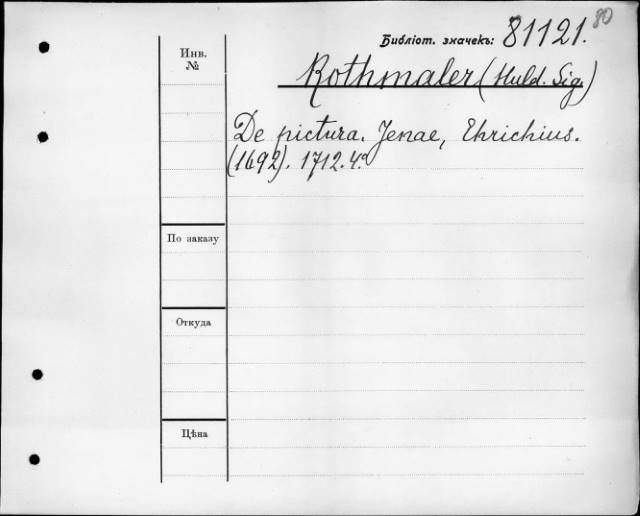 80
Библіот. значекъ: 81121.
Инв.
№
Rothmaler (Huld. Sig.)
De pictura. Jenae, Ehrichius.
(1692). 1712. 4°
По заказу
Откуда
Цѣна